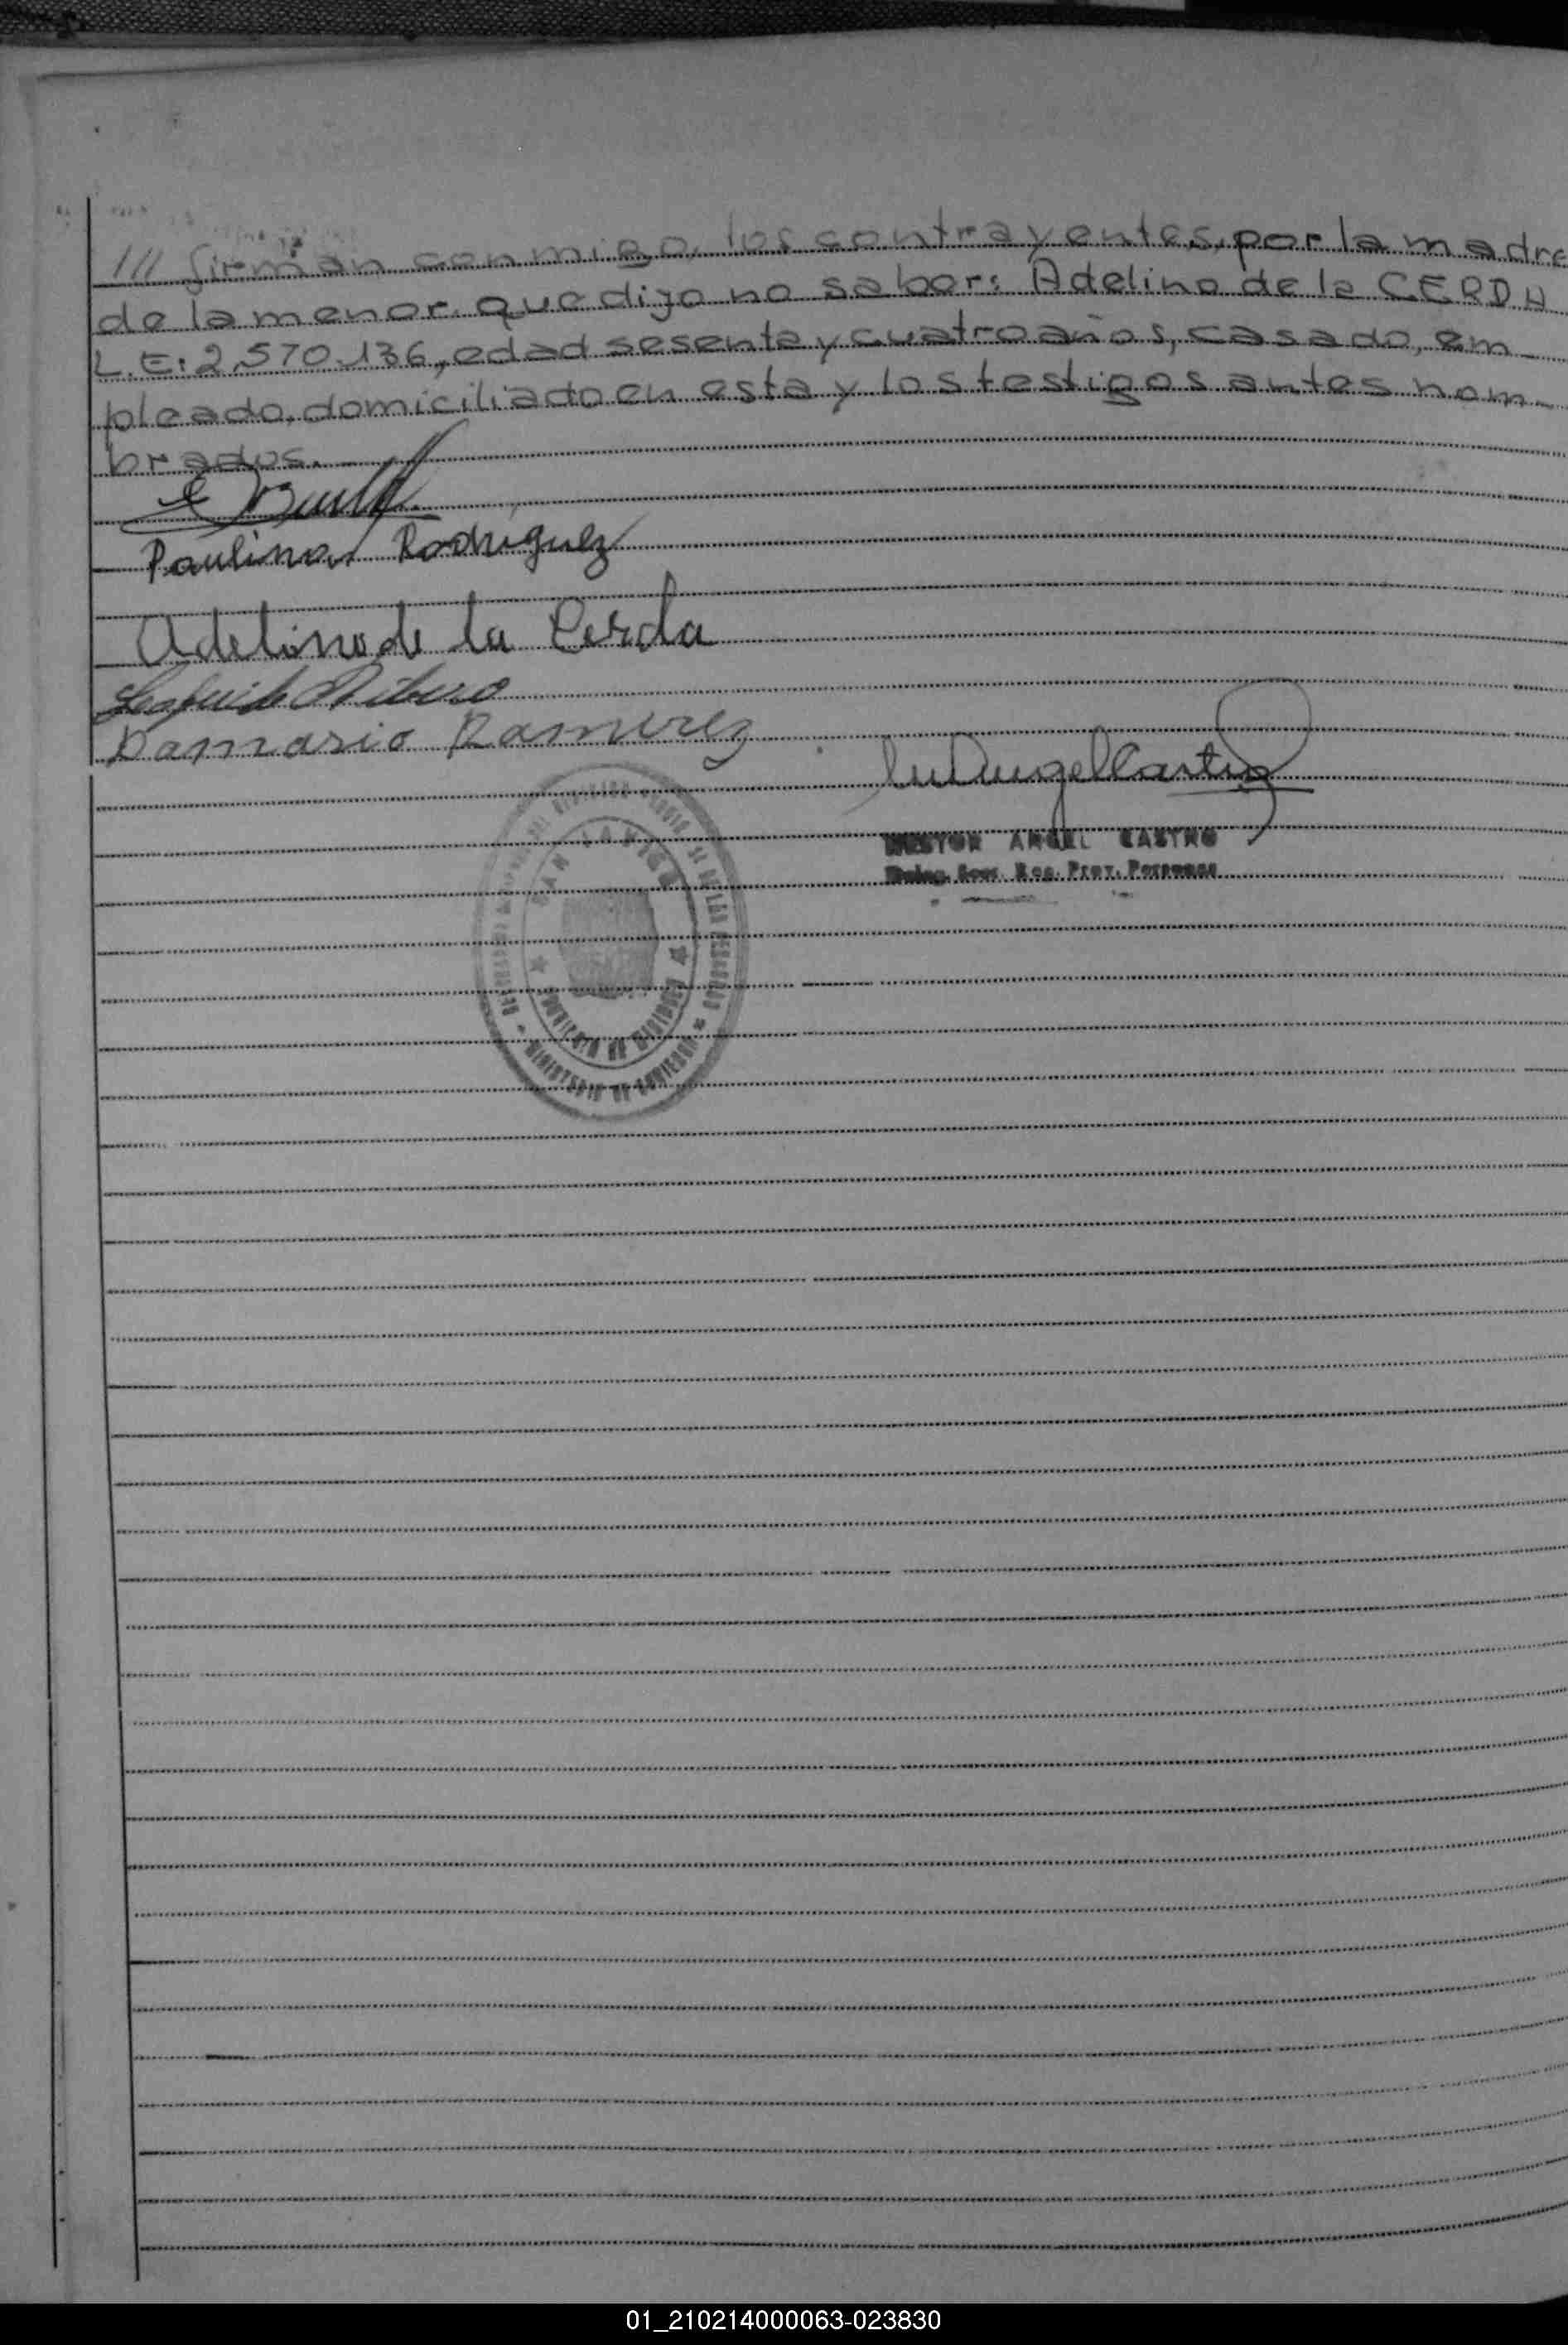 /// firman conmigo, los contrayentes, por la madre
de la menor que dijo no saber: Adelino de la CERDA
L.E: 2.570.136, edad sesenta y cuatro años, casado, em-
pleado, domiciliado en esta y los testigos antes nom-
brados.
Paulina Rodriguez
Adelino de la Cerda
Damario Ramirez
NESTOR ANGEL CASTRO
Reg. Prov. Personas
MINISTERIO DE GOBIERNO
01_210214000063-023830